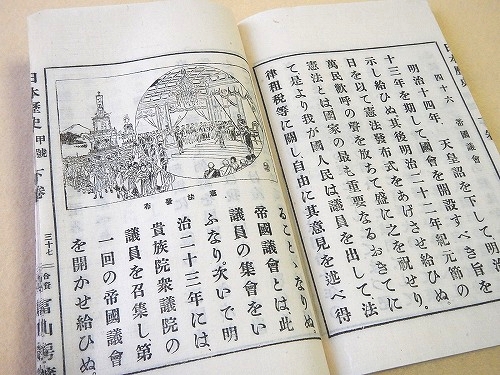 四十六 帝國議會
明治十四年、天皇詔を下して明治二
十三年を期して國會を開設すべき旨を
示し給ひぬ其後明治二十二年紀元節の
日を以て憲法發布式をあげさせ給ひぬ。
萬民歡呼の聲を放ちて盛に之を祝せり。
憲法とは國家の最も重要なるおきてに
て是より我が國人民は議員を出して法
律租税等に關し自由に其意見を述べ得
憲法發布
ること なりぬ
帝國議會とは、此
議員の集會をい
ふなり。次いで明
治二十三年には、
貴族院衆議院の
議員を召集し、第
一回の帝國議會
を開かせ給ひぬ。
日本歷史 甲號 下卷
三十七
合資
富山房